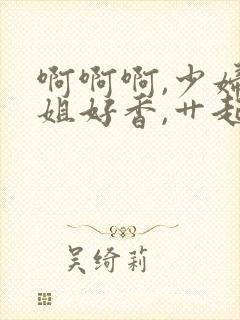 啊啊啊,少
姐好香,艹起
吴绮莉